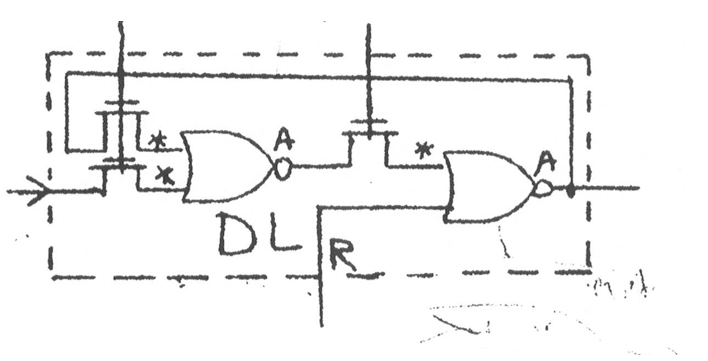 A
* * A
*
DL
R